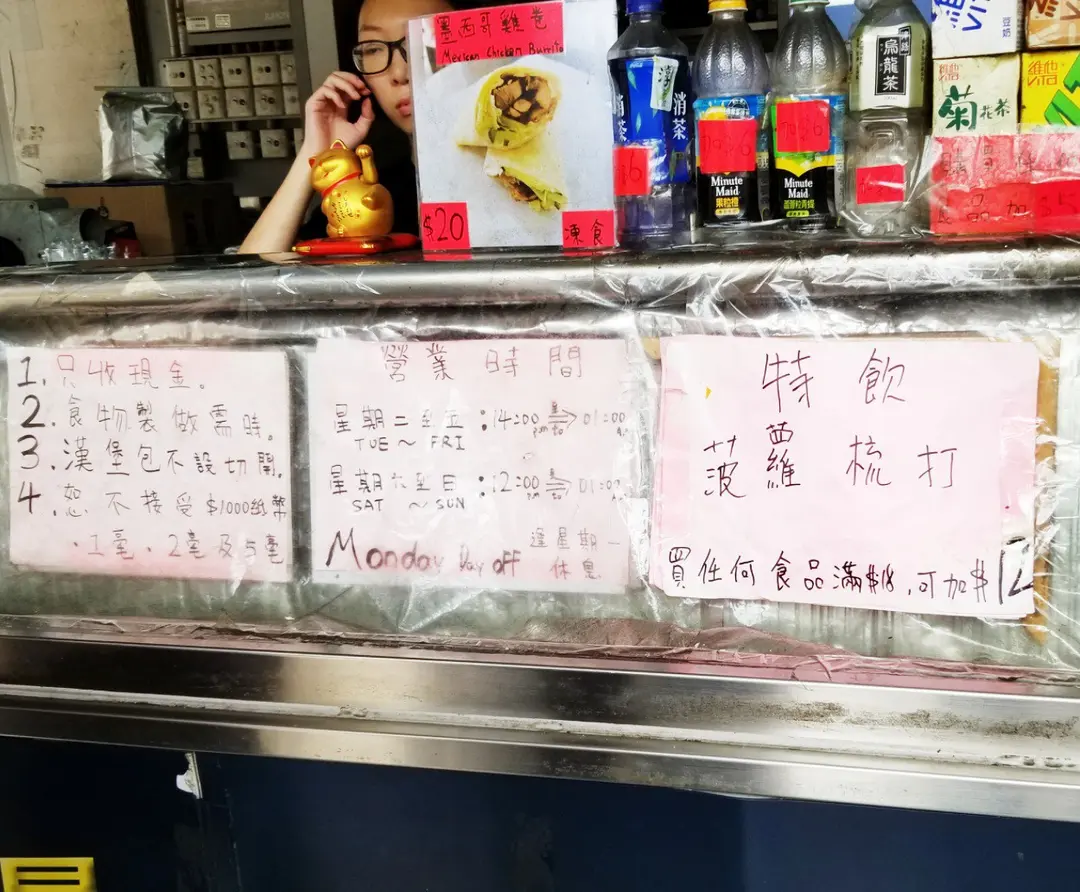 墨西哥雞卷
Mexican Chicken Burrito
$20
凍食
消茶
$6
Minute
Maid
果粒橙
加$6
Minute
Maid
烏龍茶
維他
豆奶
維他
菊花茶
維他
1. 只收現金。
2. 食物製做需時。
3. 漢堡包不設切開。
4. 恕不接受$1000紙幣
、1毫、2毫及5毫
營業時間
星期二至五:14:00 pm 至 to 01:00
TUE ~ FRI
星期六至日:12:00 pm 至 to 01:00
SAT ~ SUN
Monday Day off 逢星期一
休息
特飲
菠蘿梳打
買任何食品滿$18,可加$12